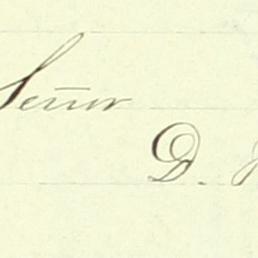 Señor
D.